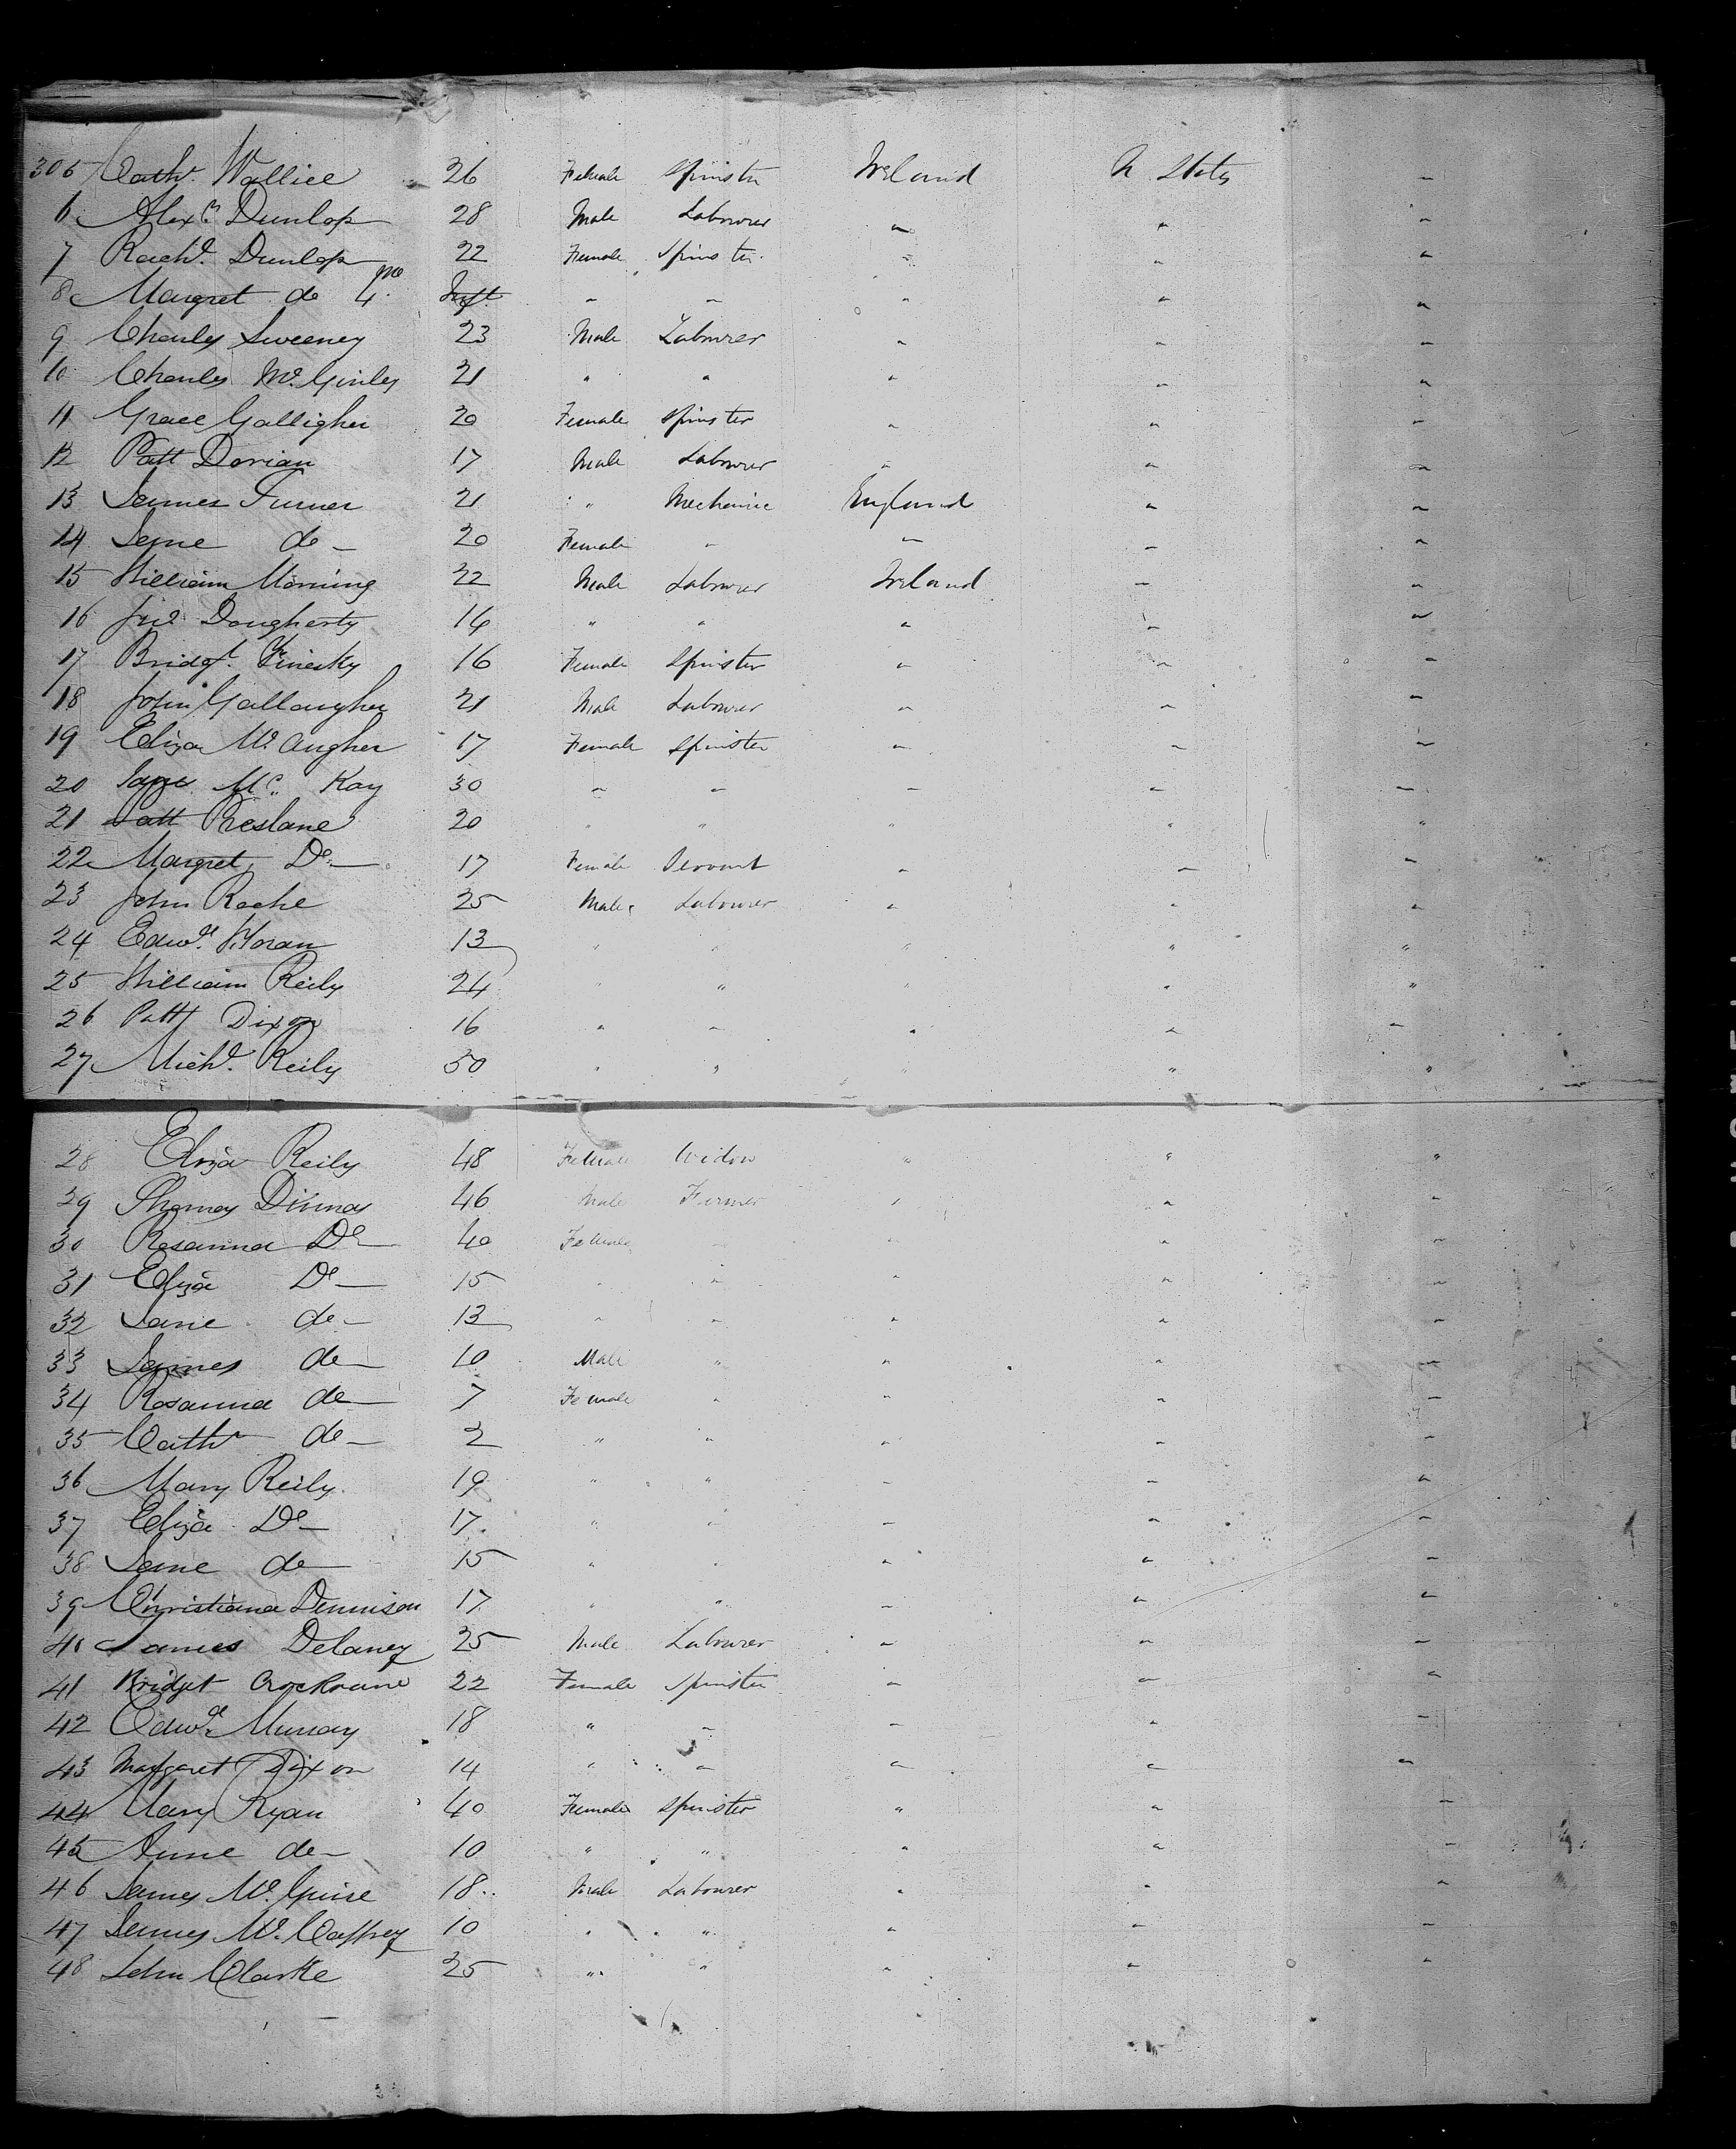 305 Cathe. Wallice 26 Female Spinster Ireland U States "
6 Alexr. Dunlop 28 Male Labourer " " "
7 Rachl. Dunlop 22 Female Spinster " " "
8 Margret do 4 mo Inft " " " " "
9 Charles Sweeney 23 Male Labourer " " "
10 Charles Mc. Ginley 21 " " " " "
11 Grace Galligher 20 Female Spinster " " "
12 Patt Dorian 17 Male Labourer " " "
13 James Turner 21 " Mechanic England " "
14 Jane do 20 Female " " " "
15 William Morning 22 Male Labourer Ireland " "
16 Jno Dougherty 14 " " " " "
17 Bridgt. 16 Female Spinster " " "
18 John Gallaugher 21 Male Labourer " " "
19 Eliza Mc. Augher 17 Female Spinster " " "
20 Jane Mc. Kay 30 " " " " "
21 Patt Breslane 20 " " " " "
22 Margret Do 17 Female Servant " " "
23 John Roche 25 Male Labourer " " "
24 Edwd. Horan 13 " " " " "
25 William Reily 24 " " " " "
26 Patt Dixon 16 " " " " "
27 Michl. Reily 50 " " " " "
28 Eliza Reily 48 Female Widow " " "
29 Thomas 46 Male Farmer " " "
30 Rosanna Do 40 Female " " " "
31 Eliza Do 15 " " " " "
32 Jane do 13 " " " " "
33 James do 10 Male " " " "
34 Rosanna do 7 Female " " " "
35 Cathe do 2 " " " " "
36 Mary Reily 19 " " " " "
37 Eliza Do 17 " " " " "
38 Jane do 15 " " " " "
39 Christiana Dennison 17 " " " " "
40 James Delaney 25 Male Labourer " " "
41 Bridget 22 Female Spinster " " "
42 Edwd. Murray 18 " " " " "
43 Margaret Dixon 14 " " " " "
44 Mary Ryan 40 Female Spinster " " "
45 Anne do 10 " " " " "
46 James Mc. Guire 18 Male Labourer " " "
47 James Mc. Caffrey 10 " " " " "
48 John Clarke 25 " " " " "